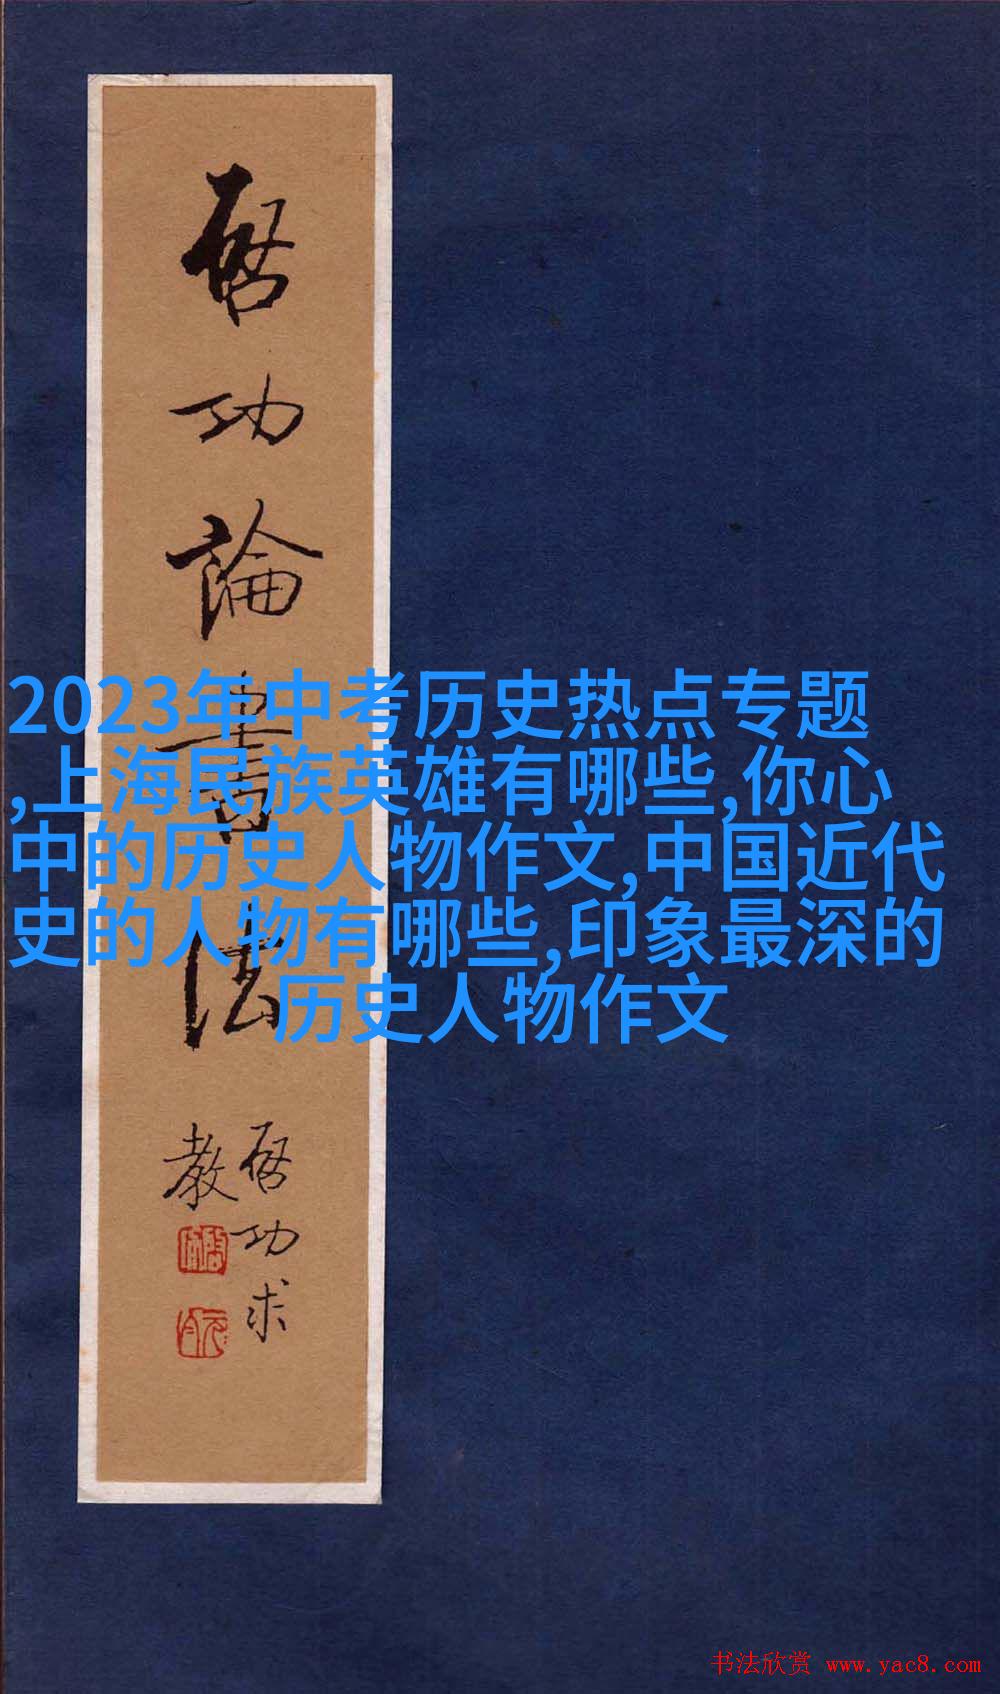 启功論書法
启功求
教
2023年中考历史热点专题
,上海民族英雄有哪些,你心
中的历史人物作文,中国近代
史的人物有哪些,印象最深的
历史人物作文
书法欣赏 www.yac8.com